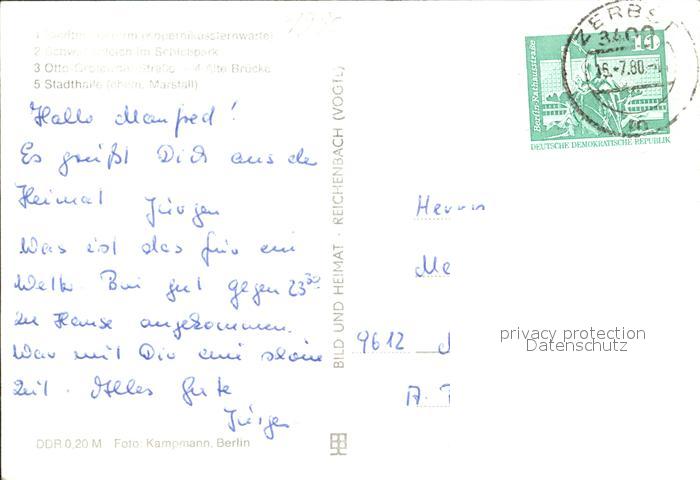 3 Otto-Grotewohl-Straße - 4 Alte Brücke
5 Stadthalle (ehem. Marstall)
Hallo Manfred!
Es grüßt Dich aus der
Heimat Jürgen
Was ist das für ein
Wetter. Bin gut gegen 23³⁰
zu Hause angekommen.
War mit Dir eine schöne
Zeit. Alles Gute
Jürgen
DDR 0,20 M Foto: Kampmann, Berlin
BILD UND HEIMAT · REICHENBACH (VOGTL)
ZERBST
3400
16.-7.80
10
Berlin, Rathausstraße
DEUTSCHE DEMOKRATISCHE REPUBLIK
Herrn
9612
privacy protection
Datenschutz